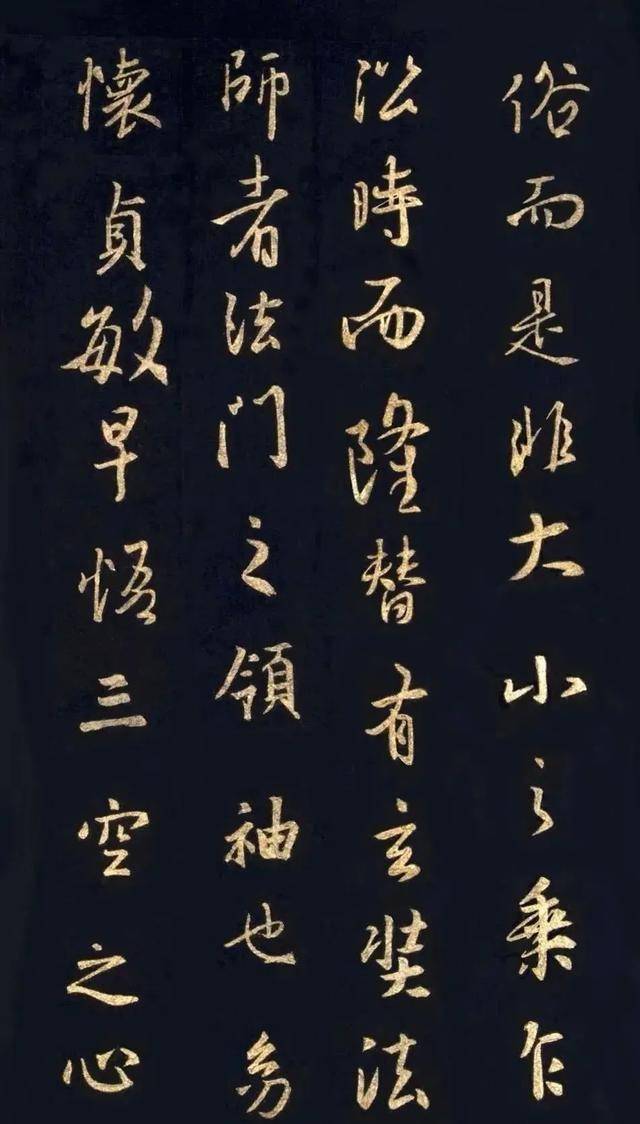 俗而是非大小之乘乍
㳂時而隆替有玄奘法
師者法門之領袖也㓜
懷貞敏早悟三空之心